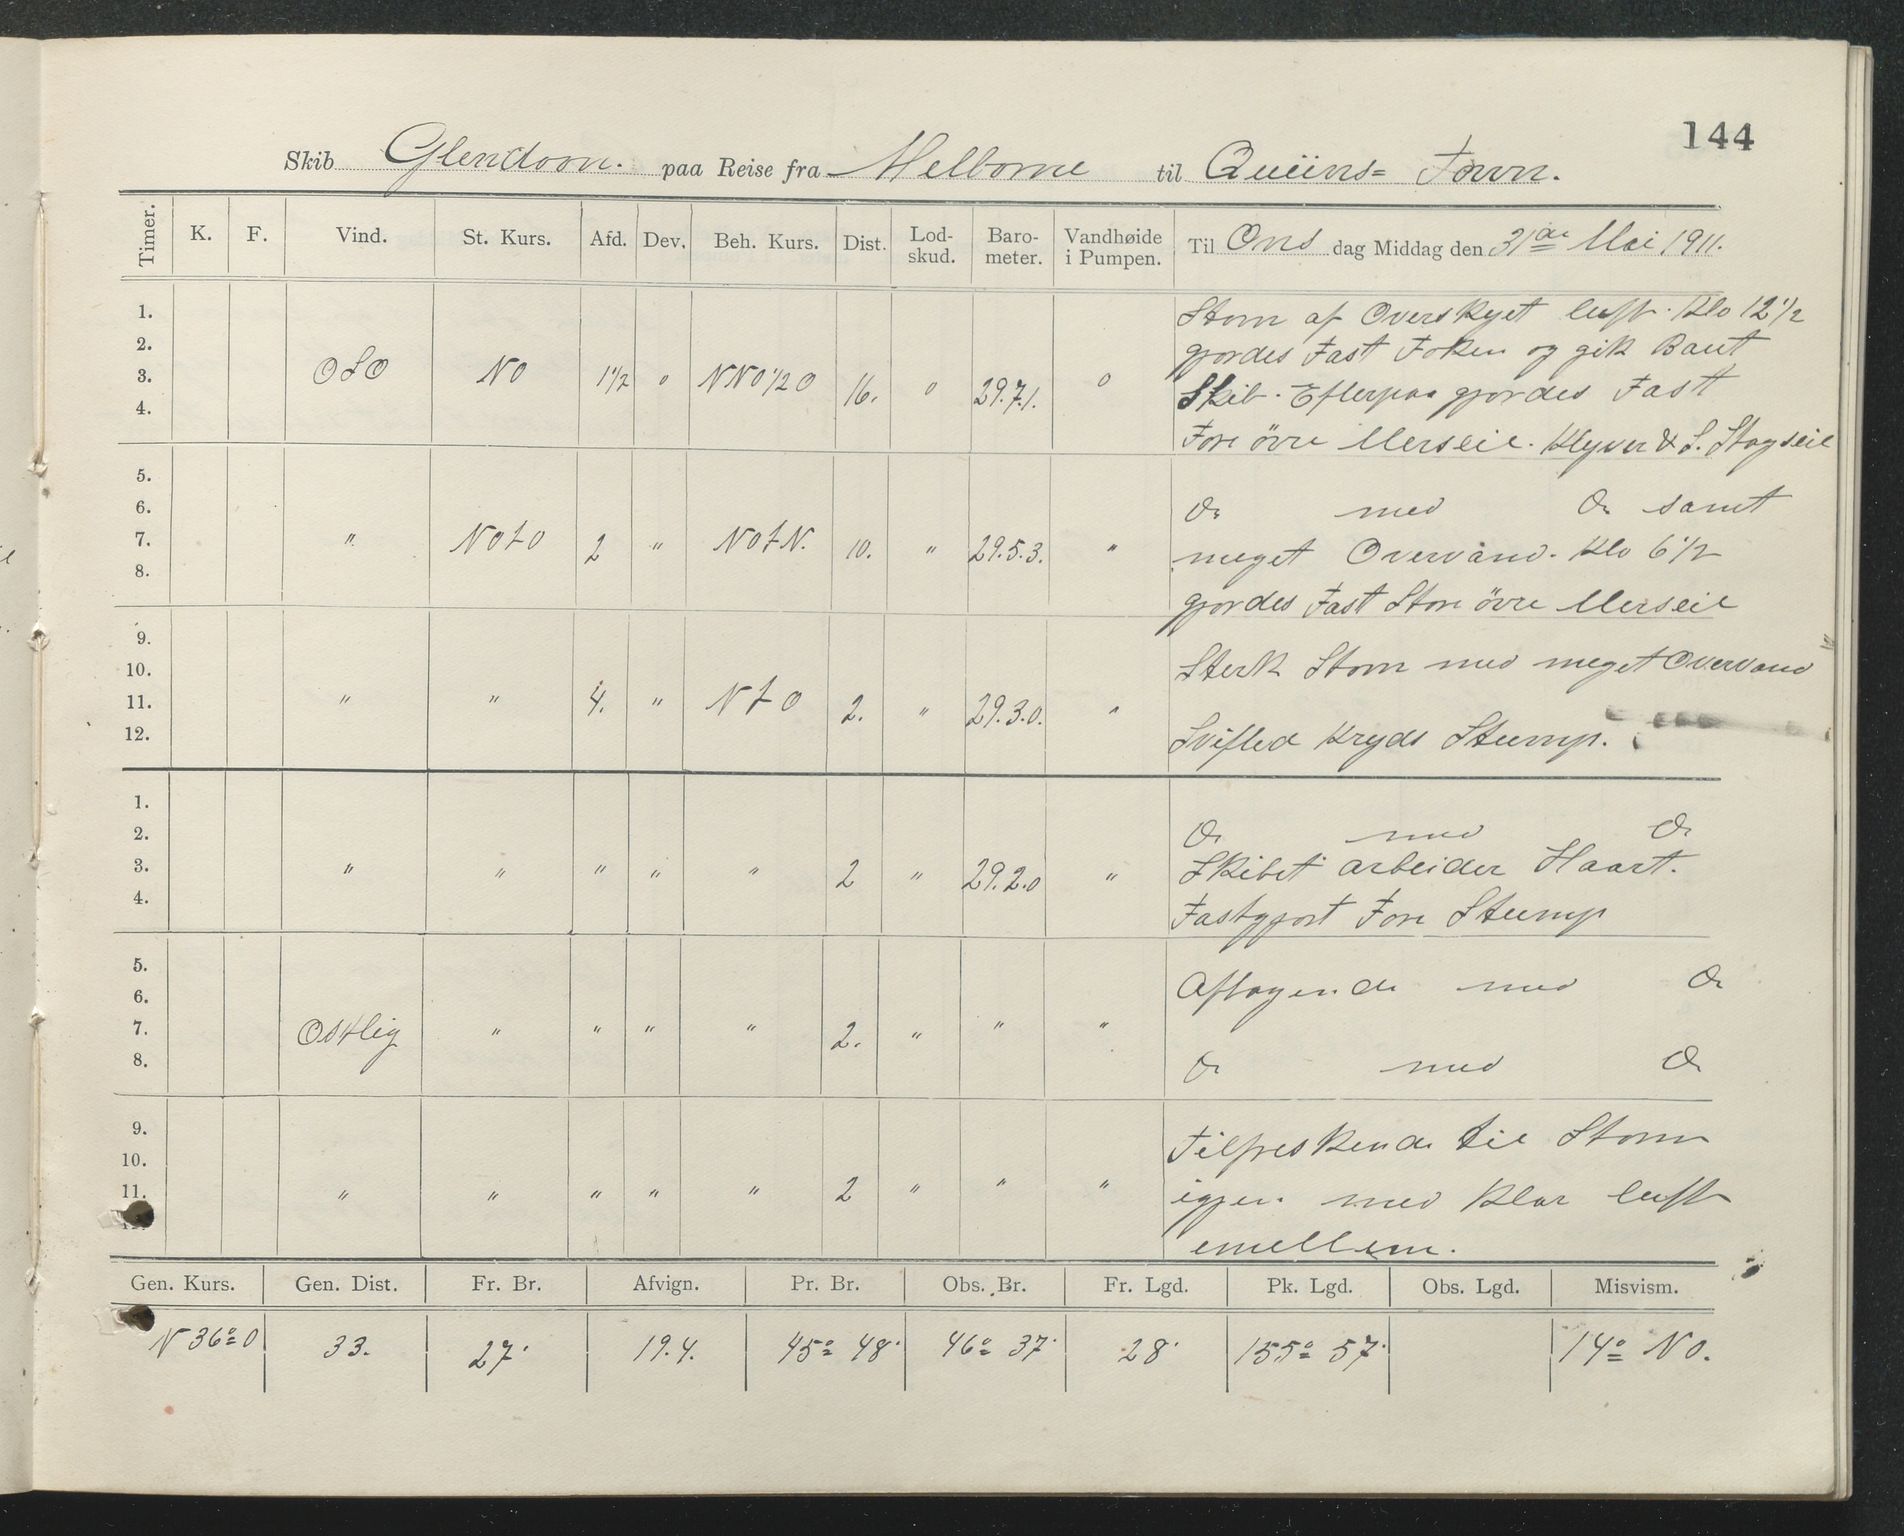 144
Skib Glendoon. paa Reise fra Melborne til Queiins= Town.
Timer. K. F. Vind. St. Kurs. Afd. Dev. Beh. Kurs. Dist. Lod-skud. Baro-meter. Vandhøide i Pumpen. Til Ons dag Middag den 31de Mai 1911.
1.
2.
3.
4.
OSO NO 1 1/2 0 NNO 1/2 O 16. 0 29.7.1. 0
Storm af Overskyet luft. Klo 12 1/2
gjordes Fast Foken og gik Baut
Skib. Efterpaa gjordes Fast
Fore övre Merseil. Klyver & S. Stagseil
5.
6.
7.
8.
" NOtO 2 " NOtN. 10. " 29.5.3. "
Do med Do samt
meget Overvand. Klo 6 1/2
gjordes Fast Store övre Merseil
9.
10.
11.
12.
" " 4. " NtO 2. " 29.3.0. "
Sterk Storm med meget Overvand
Kryds Stump.
1.
2.
3.
4.
" " " " " 2 " 29.2.0 "
Do med Do
Skibet arbeider Haart.
Fastgjort Fore Stump
5.
6.
7.
8.
Ostlig " " " " 2. " " "
Aftagende med Do
Do med Do
9.
10.
11.
" " " " " 2 " " "
Tilfreskende til Storm
igjen med Klar luft
emellem.
Gen. Kurs. Gen. Dist. Fr. Br. Afvign. Pr. Br. Obs. Br. Fr. Lgd. Pk. Lgd. Obs. Lgd. Misvism.
N 36° O 33. 27' 19.4. 45° 48' 46° 37' 28' 155° 57' 14° NO.